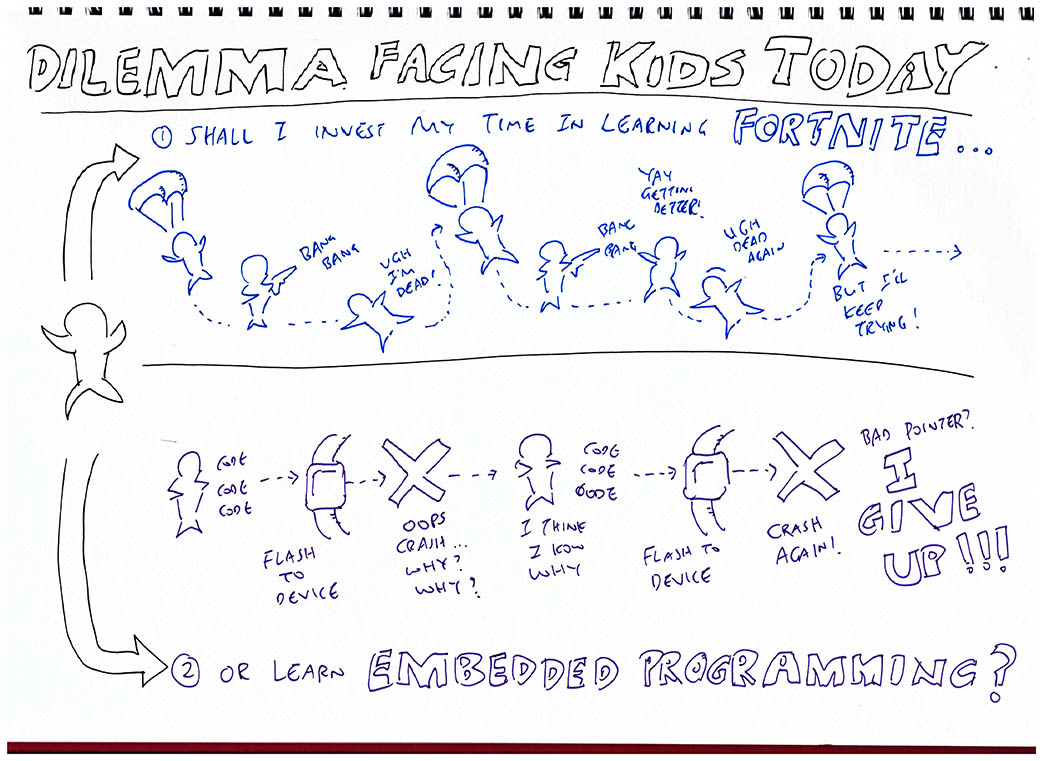 DILEMMA FACING KIDS TODAY
① SHALL I INVEST MY TIME IN LEARNING FORTNITE...
BANG
BANG
UGH
I'M
DEAD!
BANG
BANG
YAY
GETTING
BETTER!
UGH
DEAD
AGAIN
BUT I'LL
KEEP
TRYING!
CODE
CODE
CODE
FLASH
TO
DEVICE
OOPS
CRASH...
WHY?
WHY?
CODE
CODE
CODE
I THINK
I KNOW
WHY
FLASH TO
DEVICE
CRASH
AGAIN!
BAD POINTER?
I
GIVE
UP!!!
② OR LEARN EMBEDDED PROGRAMMING?